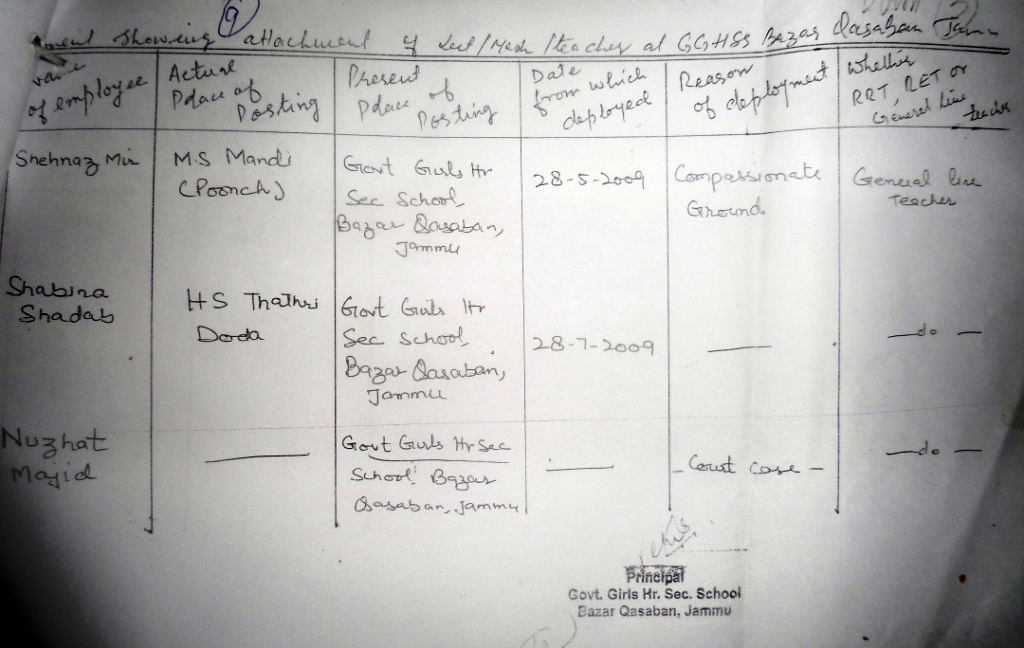 9
Showing attachment of Lect/Mash/teacher at GGHSS Bazar Qasaban Jammu
Name of employee
Actual Pdace of Posting
Present Pdace of Posting
Date from which deployed
Reason of deployment
Whether RRT, RET or General line teacher
Shehnaz Mir
M.S Mandi
(Poonch)
Govt Girls Hr
Sec School,
Bazar Qasaban,
Jammu
28-5-2009
Compassionate
Ground
General line
Teacher
Shabina
Shadab
HS Thathri
Doda
Govt Girls Hr
Sec School,
Bazar Qasaban,
Jammu
28-7-2009
—
— do —
Nuzhat
Majid
—
Govt Girls Hr Sec
School Bazar
Qasaban, Jammu
—
- Court case -
— do —
Principal
Govt. Girls Hr. Sec. School
Bazar Qasaban, Jammu